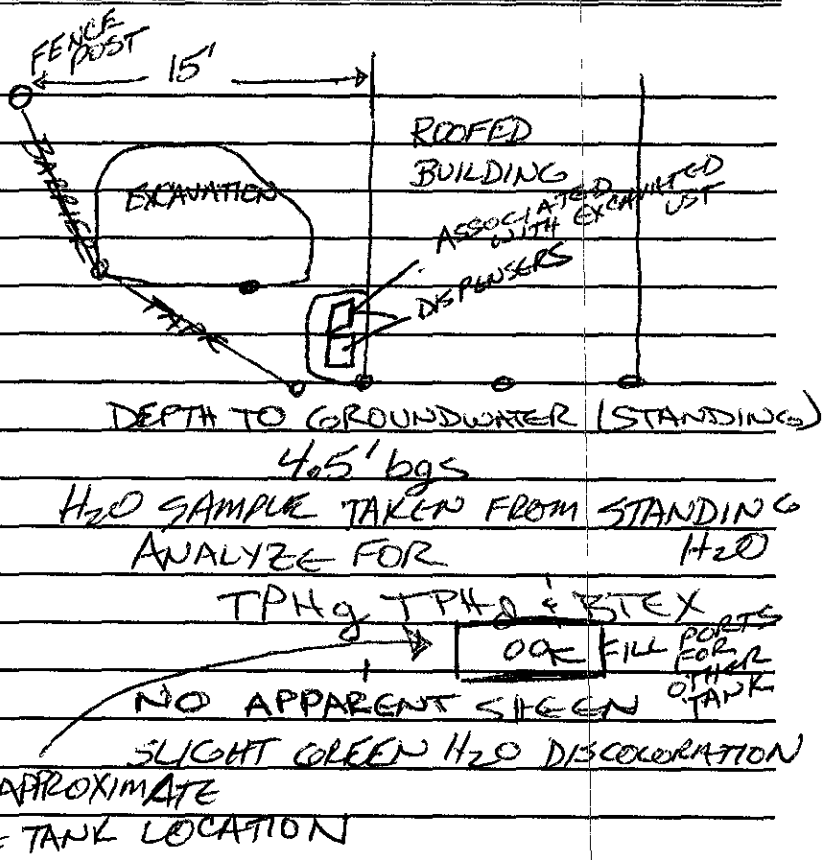 FENCE
POST
15'
BARRIER
TAPE
EXCAVATION
ROOFED
BUILDING
ASSOCIATED
WITH EXCAVATED
UST
DISPENSERS
DEPTH TO GROUNDWATER (STANDING)
4.5' bgs
H2O SAMPLE TAKEN FROM STANDING
H2O
ANALYZE FOR
TPHg TPHd & BTEX
FILL PORTS
FOR
OTHER
TANK
NO APPARENT SHEEN
SLIGHT GREEN H2O DISCOLORATION
APPROXIMATE
TANK LOCATION